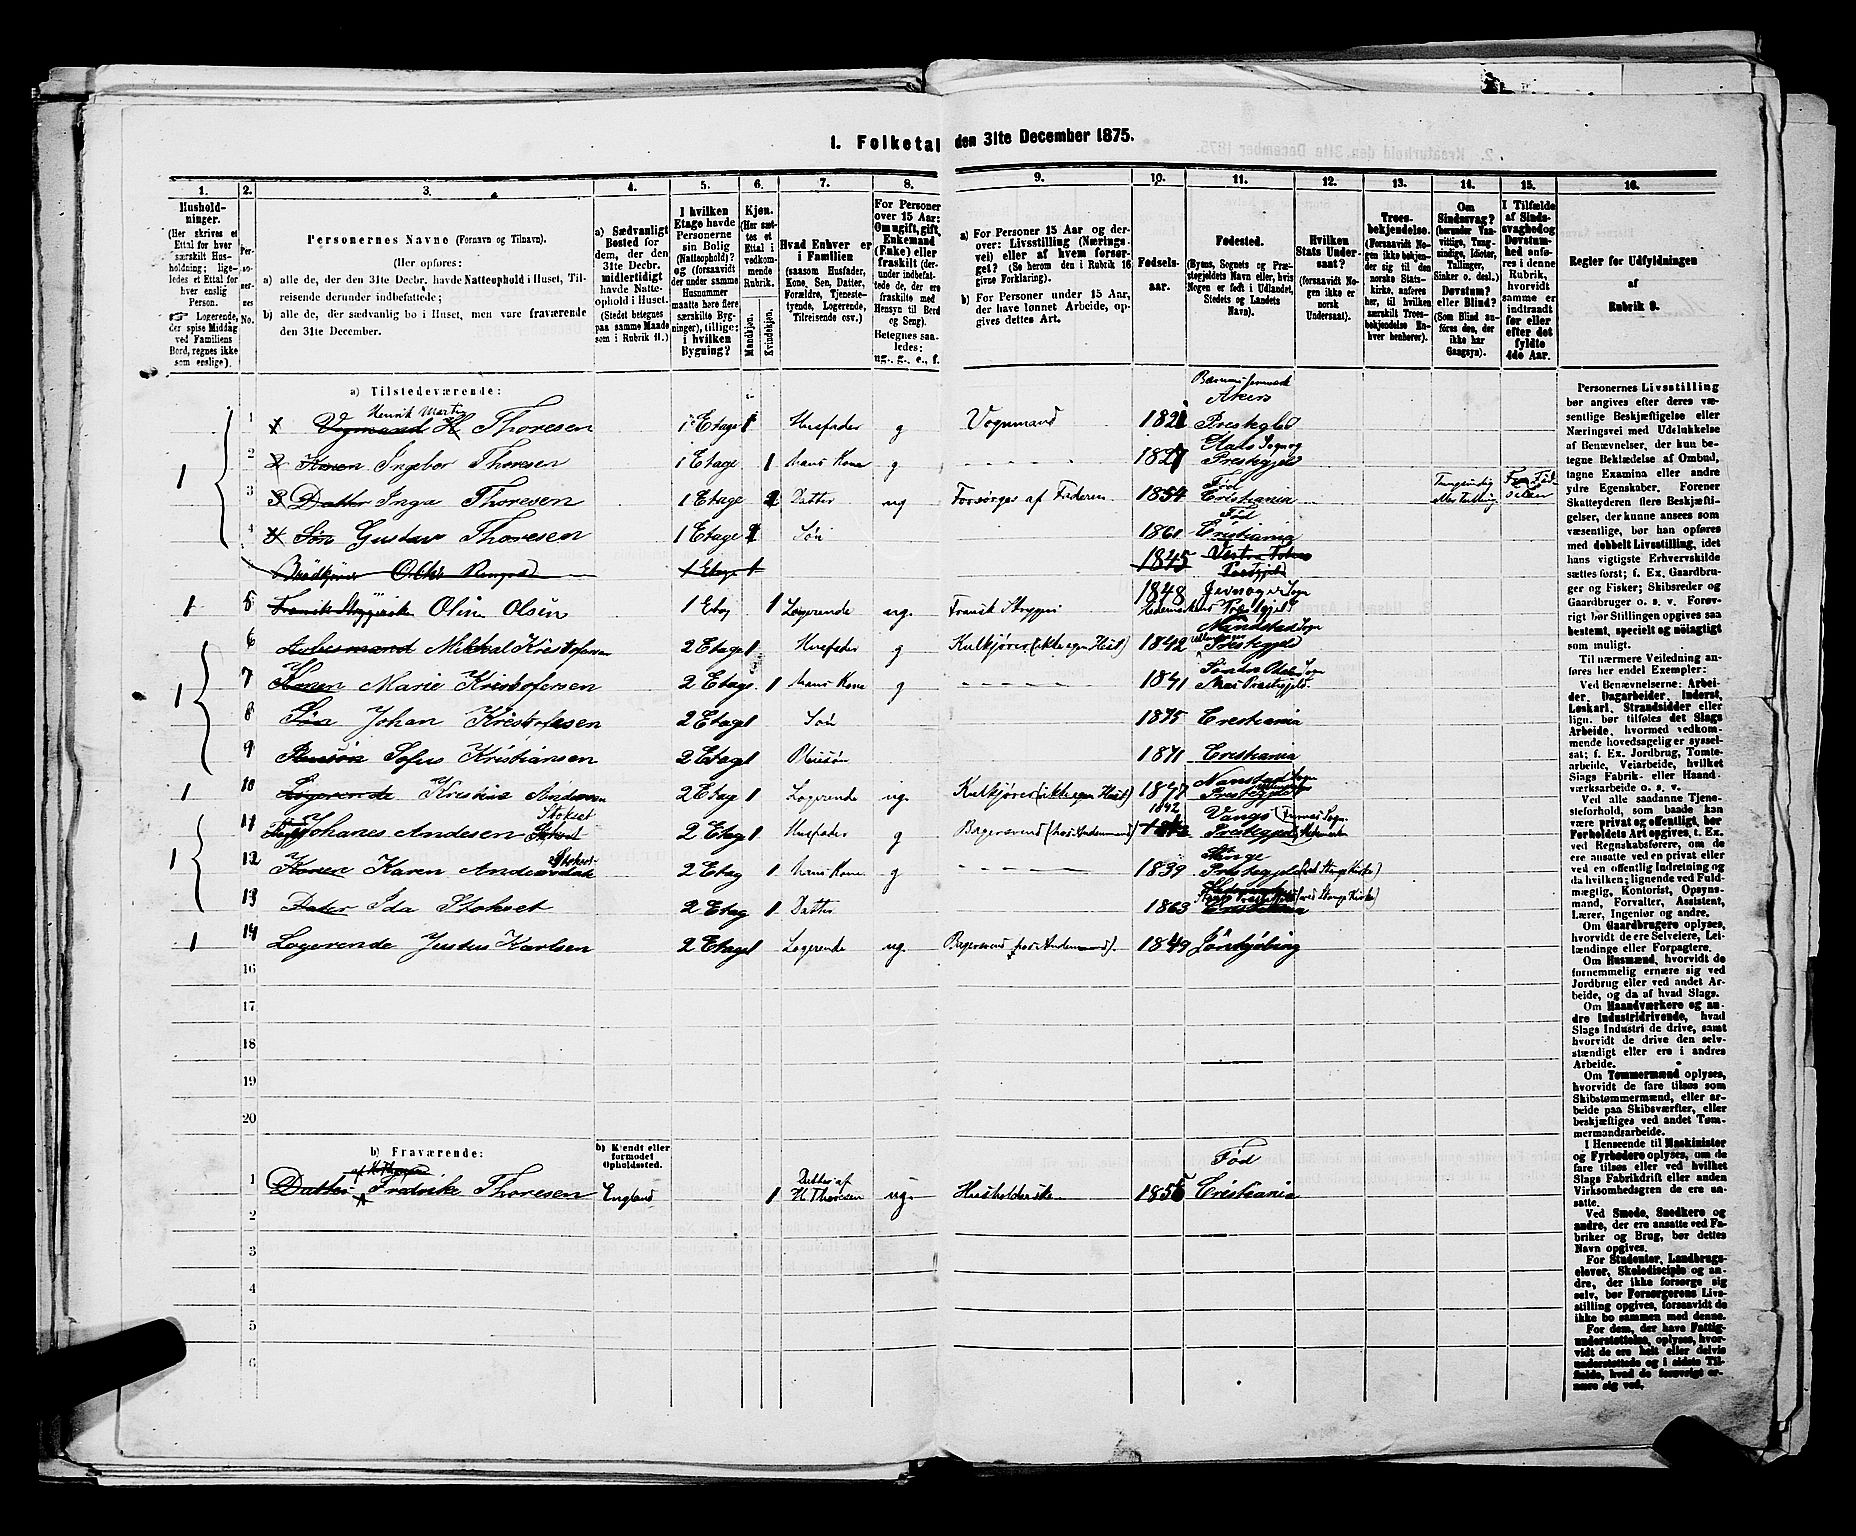 1. Folketal den 31te December 1875.
1. 2. 3. 4. 5. 6. 7. 8. 9. 10. 11. 12. 13. 14. 15. 16.
Hushold-
ninger.
(Her skrives et
Ettal for hver
særskilt Hus-
holdning; lige-
ledes et Ettal
for hver
enslig
Person.
Logerende,
der spise Middag
ved Familiens
Bord, regnes ikke
som enslige).
Per-
so-
ner-
nes
No.
Personernes Navne (Fornavn og Tilnavn).
(Her opføres:
a) alle de, der den 31te Decbr. havde Natteophold i Huset, Til-
reisende derunder indbefattede;
b) alle de, der sædvanlig bo i Huset, men vare fraværende
den 31te December.
a) Sædvanligt
Bosted for
dem, der den
31te Decbr.
midlertidigt
havde Natte-
ophold i Huset.
(Stedet betegnes
paa samme Maade
som i Rubrik 11.)
I hvilken
Etage havde
Personerne
sin Bolig
(Natteophold)?
og (forsaavidt
der under samme
Husnummer
maatte høre flere
særskilte Byg-
ninger), tillige:
i hvilken
Bygning?
Kjøn.
(Her sæt-
tes et
Ettal i
vedkom-
mende
Rubrik.
Mandkjøn.
Kvindekjøn.
Hvad Enhver er
i Familien
(saasom Husfader,
Kone, Søn, Datter,
Forældre, Tjeneste-
tyende, Logerende,
Tilreisende osv.)
For Personer
over 15 Aar:
Om ugift, gift,
Enkemand
(Enke) eller
fraskilt (der-
under indbefat-
tede de, der ere
fraskilte med
Hensyn til Bord
og Seng).
Betegnes saa-
ledes:
ug., g., e., f.
a) For Personer 15 Aar og der-
over: Livsstilling (Nærings-
vei) eller af hvem forsør-
get? (Se herom den i Rubrik 16
givne Forklaring).
b) For Personer under 15 Aar,
der have lønnet Arbeide, op-
gives dettes Art.
Fødsels-
aar.
Fødested.
(Byens, Sognets og Præ-
stegjeldets Navn eller, hvis
Nogen er født i Udlandet,
Stedets og Landets
Navn).
Hvilken
Stats Under-
saat?
(forsaavidt No-
gen ikke er
norsk
Undersaat).
Troes-
bekjendelse.
(Forsaavidt No-
gen ikke bekjen-
der sig til den
norske Stats-
kirke, anføres
her, til hvilken
særskilt Troes-
bekjendelse En-
hver henhører).
Om
Sindssvag?
(herunder Van-
vittige, Tung-
sindige, Idioter,
Tullinger,
Sinker o. desl.)
Døvstum?
eller Blind?
(Som Blind an-
føres den, der
ikke har
Gangsyn).
I Tilfælde
af Sinds-
svaghed og
Døvstum-
hed anfø-
res i denne
Rubrik,
hvorvidt
samme er
indtraadt
før eller
efter det
fyldte
4de Aar.
Regler for Udfyldningen
af
Rubrik 9.
a) Tilstedeværende:
1 1 Vognmand H Henrik Martin Thoresen 1 Etage 1 Husfader g Vognmand Akers Prestegjeld
2 Konen Ingebor Thoresen 1 Etage 1 hans Kone g - - - - 1827 Sogn og Prestegjeld
3 Datter Inga Thoresen 1 Etage Datter ug Forsørges af Faderen 1854 Fød Cristiania
4 Søn Gustav Thoresen 1 Etage Søn 1861 Fød Cristiania
1 Etage 1 1845
1 5 Olin Olsen 1 Etag 1 Logerende ug. 1848
1 6 Mikkal Kristofersen 2 Etage 1 Husfader g Kulkjører (ikke egen Hest) 1842 Nanestad Sogn Prestegjeld
7 Konen Marie Kristofersen 2 Etage 1 hans Kone g - - - - 1841
8 Søn Johan Kristofersen 2 Etage 1 Søn 1875 Cristiania
9 Pleiesøn Sofus Kristiansen 2 Etage 1 Pleiesøn 1871 Cristiania
1 10 Logerende Kristian Andersen 2 Etage 1 Logerende ug. Kulkjører (ikke egen Hest) Nanestad Sogn Prestegjeld
1 11 Johanes Andesen Stokset 2 Etage 1 Husfader g Bagersvend (hos Andenmand) 1842 Vangs (Furnæs Sogn Prestegjeld
12 Konen Karen Andersdatt Stokset 2 Etag 1 hans Kone g - - - - 1839 Stange Prestegjeld (ved Stange Kirke)
13 Dater Ida Stokset 2 Etag 1 Datter 1863 Stange Prestegjeld (ved Stange Kirke) Cristiania
1 14 Logerende Justus Karlsen 2 Etage 1 Logerende ug. Bagersvend (hos Andenmand). 1849 Jönkjöbing
16
17
18
19
20
b) Fraværende:
b) Kjendt eller
formodet
Opholdssted.
1 Datter af H Thoresen Fredrike Thoresen England 1 Datter af H Thoresen ug. Husholderske Fød Cristiania
2
3
4
5
6
Personernes Livsstilling
bør angives efter deres væ-
sentlige Beskjæftigelse eller
Næringsvei med Udelukkelse
af Benævnelser, der kun be-
tegne Beklædelse af Ombud,
tagne Examina eller andre
ydre Egenskaber. Forener
Skatteyderen flere Beskjæfti-
gelser, der kunne ansees som
væsentlige, bør han opføres
med dobbelt Livsstilling, idet
hans vigtigste Erhvervskilde
sættes først; f. Ex. Gaardbru-
ger og Fisker; Skibsreder og
Gaardbruger o. s. v. Forøv-
rigt bør Stillingen opgives saa
bestemt, specielt og nøiagtigt
som muligt.
Til nærmere Veiledning an-
føres her endel Exempler:
Ved Benævnelserne: Arbei-
der, Dagarbeider, Inderst,
Løskarl, Strandsidder eller
lign. bør tilføies det Slags
Arbeide, hvormed vedkom-
mende hovedsagelig er syssel-
sat; f. Ex. Jordbrug, Tomte-
arbeide, Veiarbeide, hvilket
Slags Fabrik- eller Haand-
værksarbeide o. s. v.
Ved alle saadanne Tjene-
steforhold, som baade kan
være privat og offentlig, bør
Forholdets Art opgives, t. Ex.
ved Regnskabsførere, om de
ere ansatte ved en privat eller
ved en offentlig Indretning og
da hvilken; lignende ved Fuld-
mægtig, Kontorist, Opsyns-
mand, Forvalter, Assistent,
Lærer, Ingeniør og andre.
Om Gaardbrugere oplyses,
hvorvidt de ere Selveiere, Lei-
lændinge eller Forpagtere.
Om Husmænd, hvorvidt de
fornemmelig ernære sig ved
Jordbrug eller ved andet Ar-
beide, og da af hvad Slags.
Om Haandværkere og an-
dre Industridrivende, hvad
Slags Industri de drive, samt
hvorvidt de drive den selv-
stændigt eller ere i andres
Arbeide.
Om Tømmermænd oplyses,
hvorvidt de fare tilsøs som
Skibstømmermænd, eller ar-
beide paa Skibsværfter, eller
beskjæftiges ved andet Tøm-
mermandsarbeide.
I Henseende til Maskinister
og Fyrbødere oplyses, om de
fare tilsøs eller ved hvilket
Slags Fabrikdrift eller anden
Virksomhedsgren de ere an-
satte.
Ved Smede, Snedkere og
andre, der ere ansatte ved Fa-
briker og Brug, bør dettes
Navn opgives.
For Studenter, Landbrugs-
elever, Skoledisciple og an-
dre, der ikke forsørge sig
selv, bør Forsørgerens Livs-
stilling opgives, forsaavidt de
ikke bo sammen med denne.
For dem, der have Fattig-
understøttelse, oplyses, hvor-
vidt de ere helt eller delvis
understøttede og i sidste Til-
fælde, hvad de forøvrigt er-
nære sig ved.